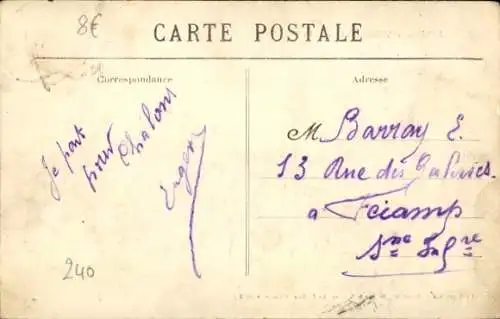 8€
CARTE POSTALE
Correspondance
Adresse
Je part
pour
Chalons
Eugène
M. Barray E.
13 Rue des Galeries.
a Fécamp
Sne Infre
240